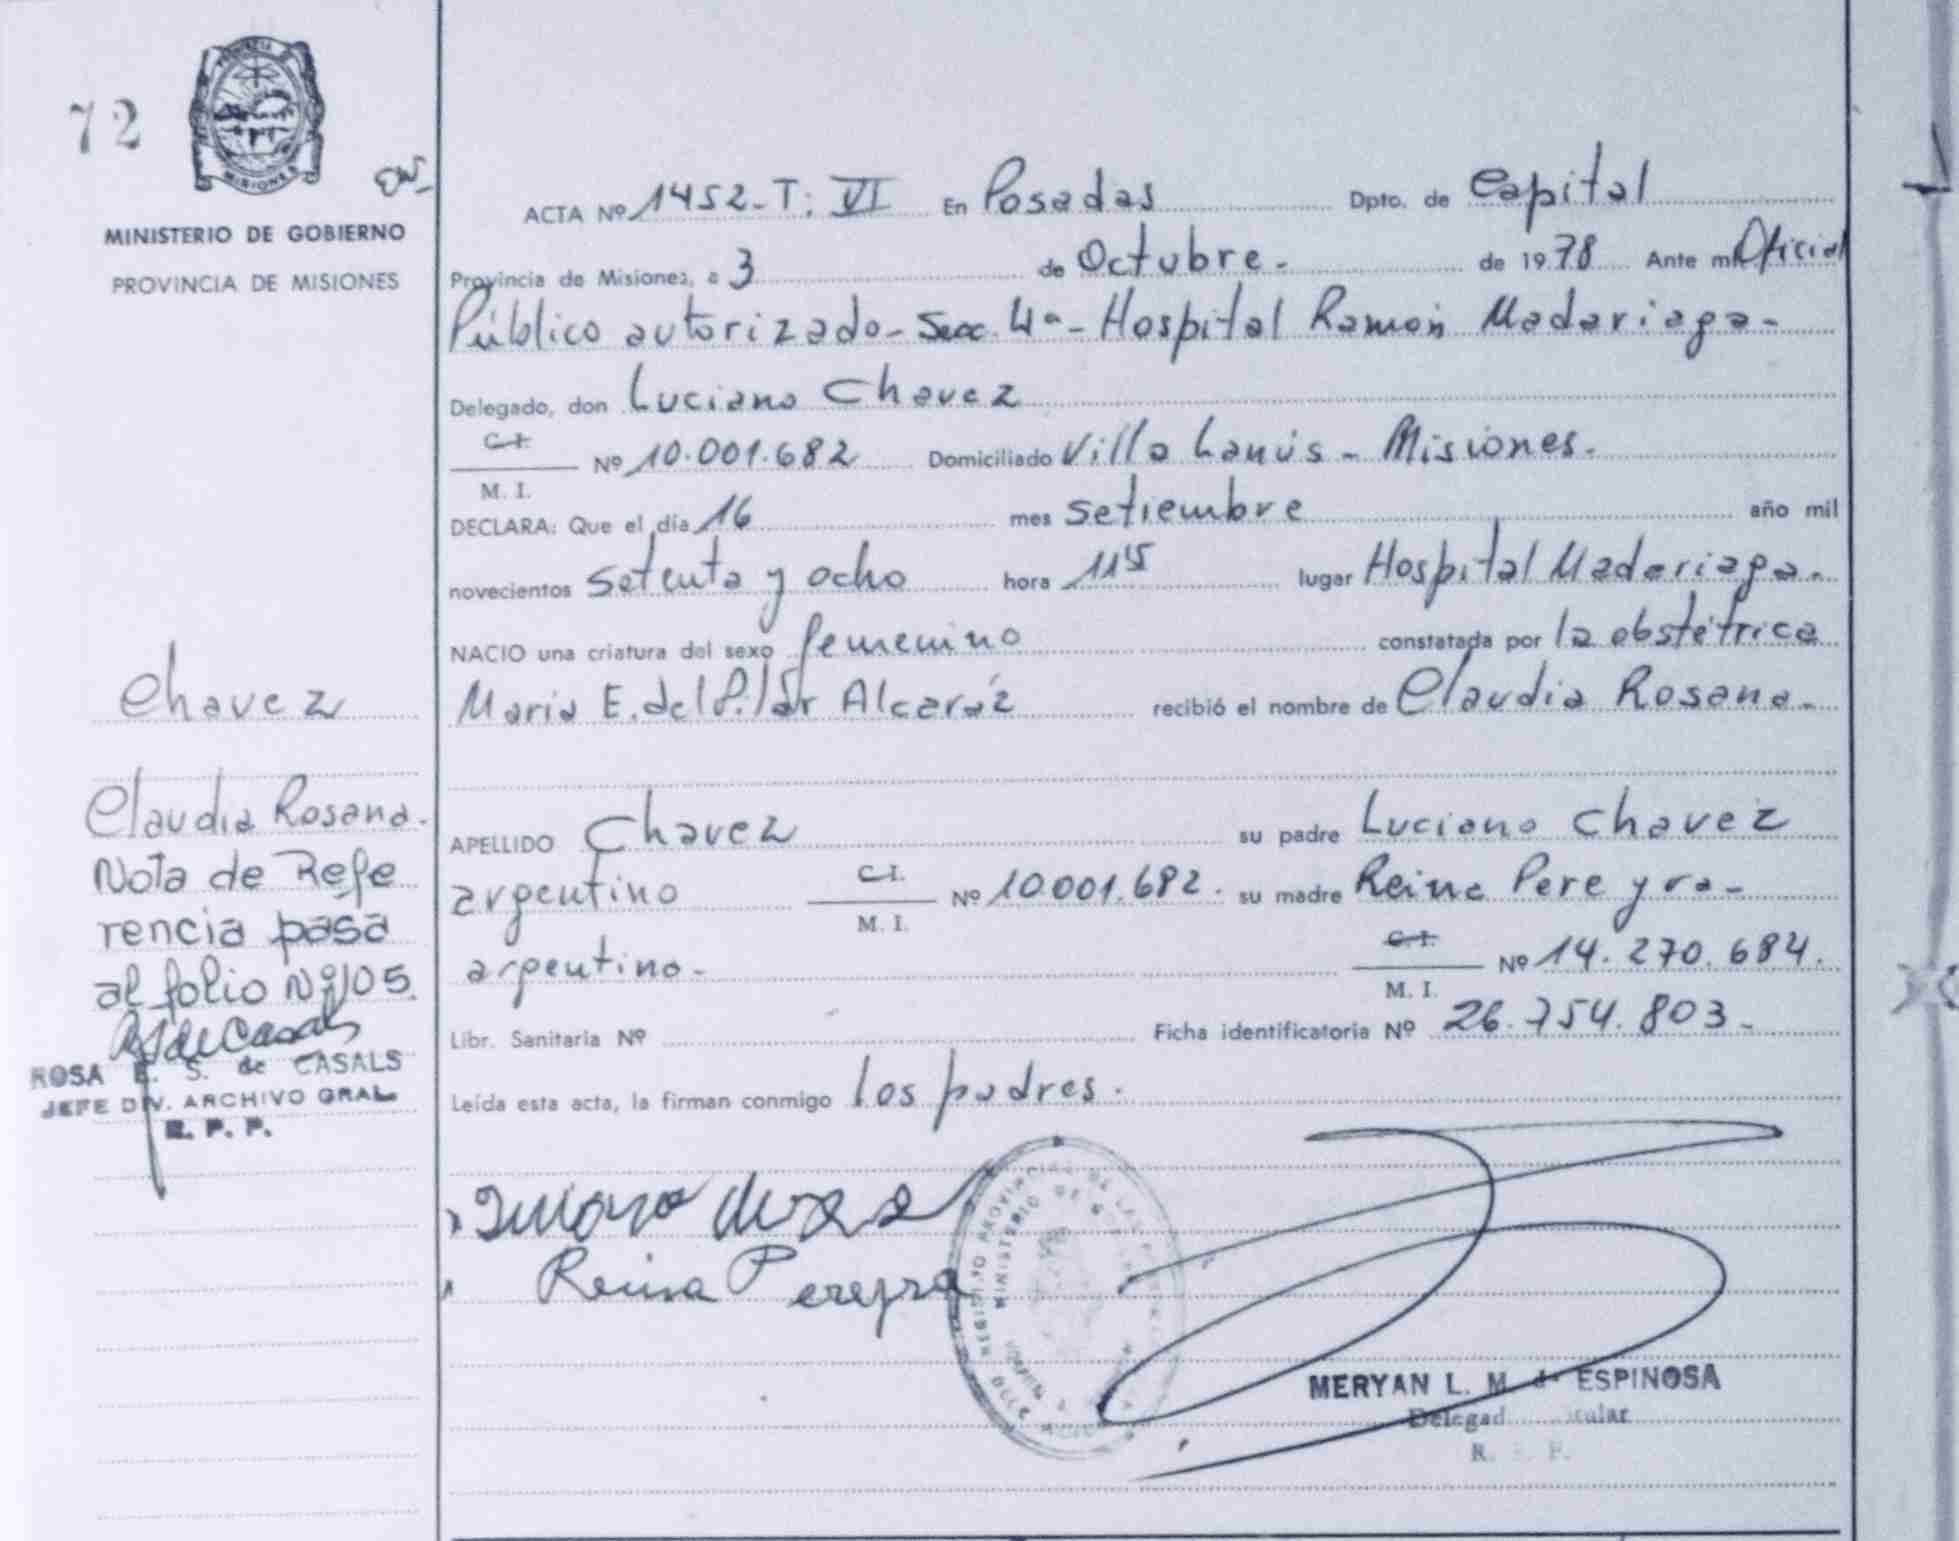 72
MISIONES
MINISTERIO DE GOBIERNO
PROVINCIA DE MISIONES
Chavez
Claudia Rosana.
Nota de Refe
rencia pasa
al folio Nº 105
ROSA E. S. de CASALS
JEFE DIV. ARCHIVO GRAL
R. P. P.
ACTA Nº 1452-T: VI En Posadas Dpto. de Capital
Provincia de Misiones, a 3 de Octubre. de 1978 Ante mi Oficial
Público autorizado- Secc. 4ª- Hospital Ramón Madariaga-
Delegado, don Luciano Chavez
C.I.
M. I. Nº 10.001.682 Domiciliado Villa Lanús - Misiones.
DECLARA: Que el día 16 mes setiembre año mil
novecientos setenta y ocho hora 11 45 lugar Hospital Madariaga.
NACIO una criatura del sexo femenino constatada por la obstétrica
Maria E. del Pilar Alcaráz recibió el nombre de Claudia Rosana.
APELLIDO Chavez su padre Luciano Chavez
argentino C.I. M. I. Nº 10.001.682. su madre Reina Pereyra-
argentina- C.I. M. I. Nº 14.270.684.
Libr. Sanitaria Nº Ficha identificatoria Nº 26.754.803-
Leída esta acta, la firman conmigo los padres.
Reina Pereyra
MINISTERIO DE
MERYAN L. M. de ESPINOSA